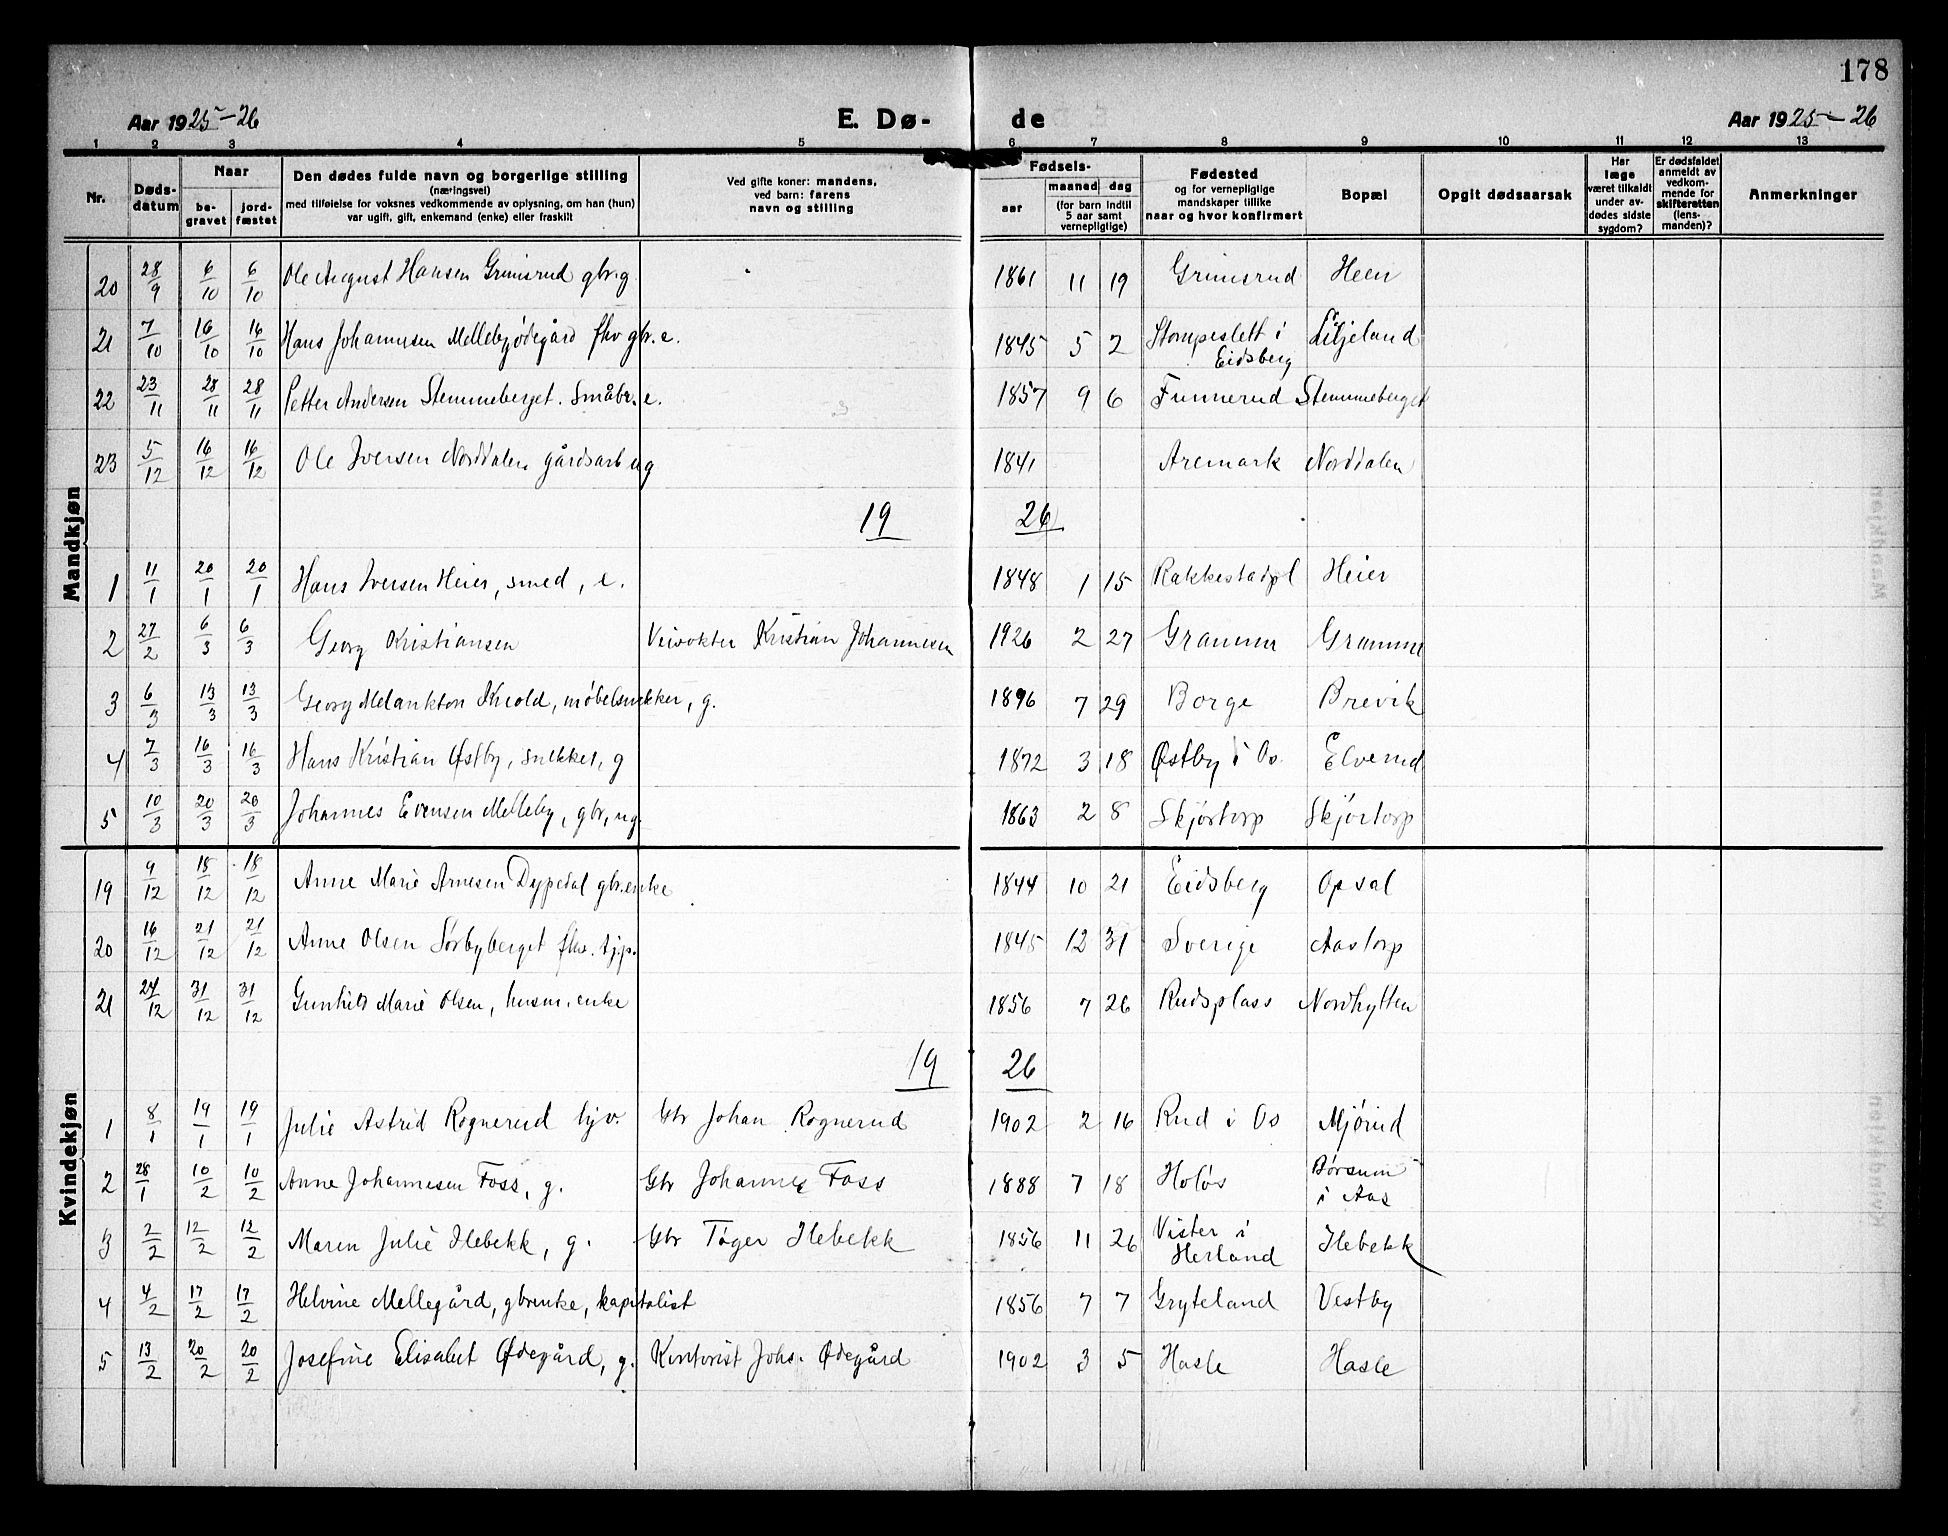 178
Aar 1925-26 E. Dø- de Aar 1925-26
1 2 3 4 5 6 7 8 9 10 11 12 13
Nr. Dødsdatum Naar begravet jordfæstet Den dødes fulde navn og borgerlige stilling (næringsvei) med tilføielse for voksnes vedkommende av oplysning, om han (hun) var ugift, gift, enkemand (enke) eller fraskilt Ved gifte koner: mandens, ved barn: farens navn og stilling Fødsels- aar maaned dag (for barn indtil 5 aar samt vernepligtige) Fødested og for vernepligtige mandskaper tillike naar og hvor konfirmert Bopæl Opgit dødsaarsak Har læge været tilkaldt under avdødes sidste sygdom? Er dødsfaldet anmeldt av vedkommende for skifteretten (lensmanden)? Anmerkninger
Mandkjøn
20 28/9 6/10 6/10 Ole August Hansen Grimsrud gbr. g. 1861 11 19 Grimsrud Heen
21 7/10 16/10 16/10 Hans Johannesen Mellebyødegård fhv gbr. e. 1845 5 2 Stompeslett i Eidsberg Liljeland
22 23/11 28/11 28/11 Petter Andersen Stemmeberget. Småbr. e. 1857 9 6 Funnerud Stemmeberget
23 5/12 16/12 16/12 Ole Iversen Norddalen gårdsarb ug 1841 Aremark Norddalen
19 26
1 11/1 20/1 20/1 Hans Iversen Heier, smed, e. 1848 1 15 Rakkestadpl Heier
2 27/2 6/3 6/3 Georg Kristiansen Veivokter Kristian Johannesen 1926 2 27 Gramm Gramm
3 6/3 13/3 13/3 Georg Melankton Kiold, møbelsnekker, g. 1896 7 29 Borge Brevik
4 7/3 16/3 16/3 Hans Kristian Østby, snekker, g 1872 3 18 Østby i Os. Elverud
5 10/3 20/3 20/3 Johannes Evensen Melleby, gbr, ug. 1863 2 8 Skjørtorp Skjørtorp
Kvindekjøn
19 9/12 18/12 18/12 Anne Marie Arnesen Dypedal gbr.enke 1844 10 21 Eidsberg Opsal
20 16/12 21/12 21/12 Anne Olsen Sørbyberget fhv. tj.p. 1845 12 31 Sverige Aastorp
21 24/12 31/12 31/12 Gunhild Marie Olsen, husm. enke 1856 7 26 Rudsplass Nordhytten
19 26
1 8/1 19/1 19/1 Julie Astrid Rognerud hjv. Gbr Johan Rognerud 1902 2 16 Rud i Os Mjørud
2 28/1 10/2 10/2 Anne Johannesen Foss, g. Gbr Johannes Foss 1888 7 18 Holøs Børsum i Aas
3 2/2 12/2 12/2 Maren Julie Ilebekk, g. Gbr Tøger Ilebekk 1856 11 26 Vister i Herland Ilebekk
4 4/2 17/2 17/2 Helvine Mellegård, gbrenke, kapitalist 1856 7 7 Gryteland Vestby
5 13/2 20/2 20/2 Josefine Elisabet Ødegård, g. Kontorist Johs. Ødegård 1902 3 5 Hasle Hasle